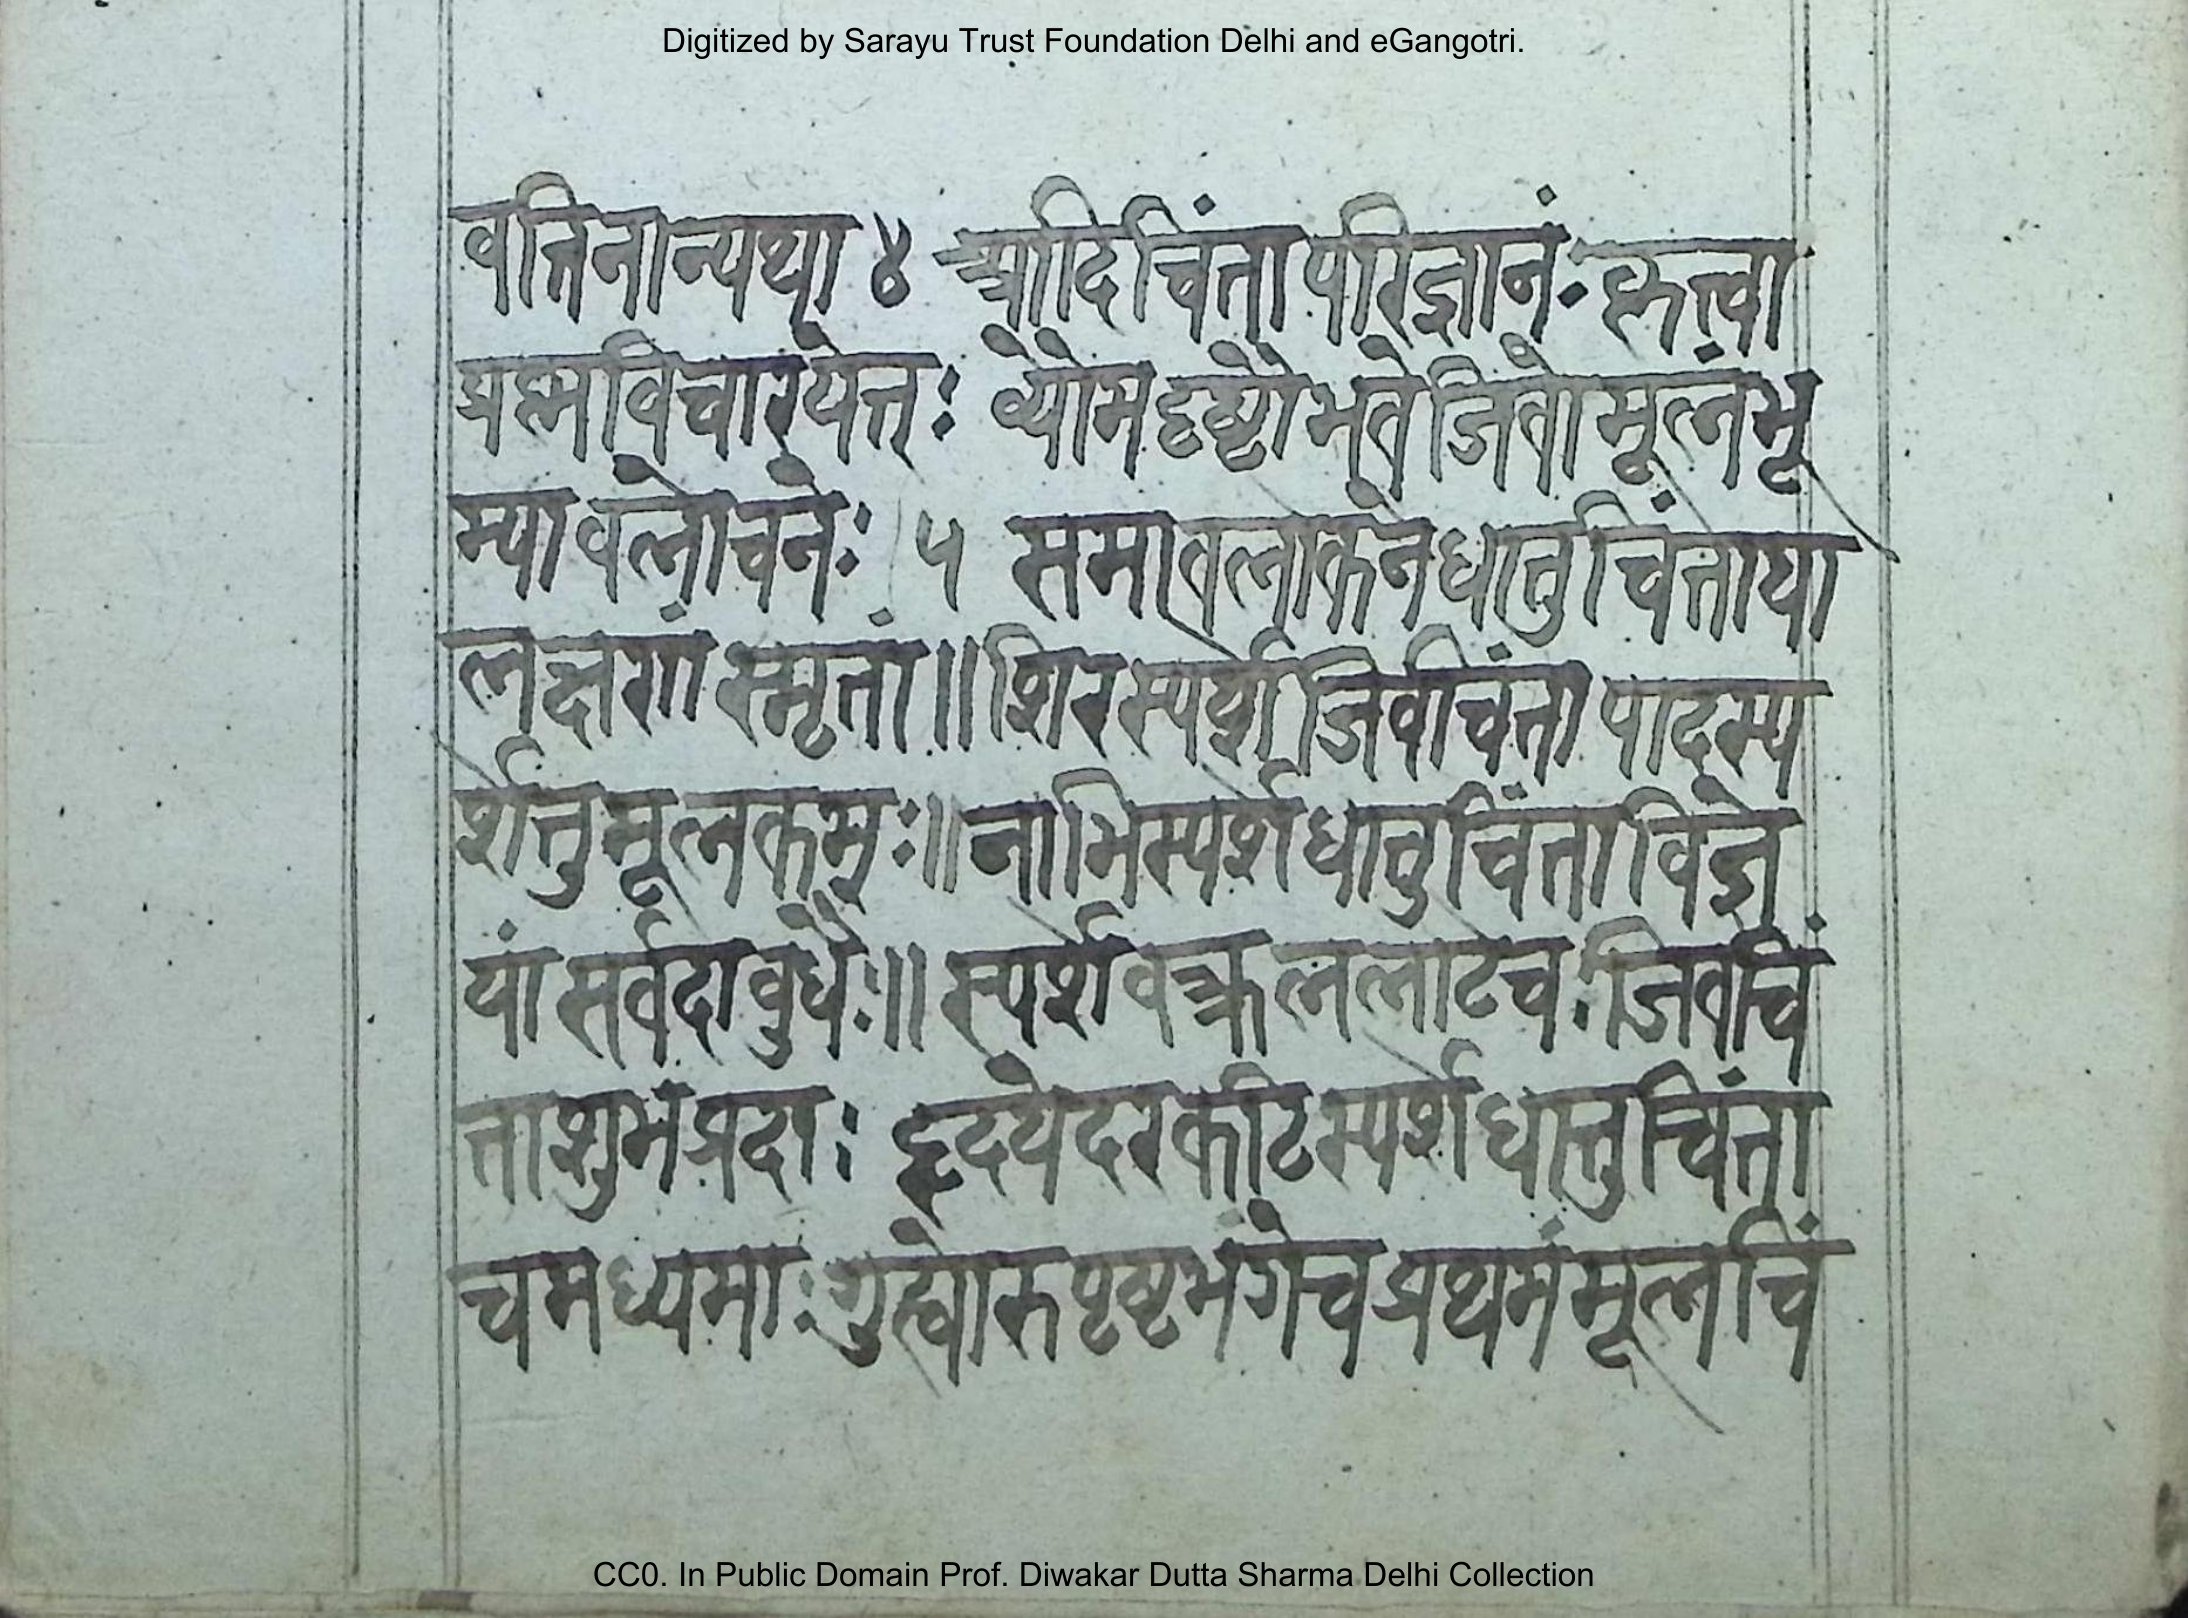 Digitized by Sarayu Trust Foundation Delhi and eGangotri.
वतिनान्यथा ४ आदिचिंता परिज्ञानं: कृत्वा
प्रष्णविचारयेत्त: व्योमदृष्टौ भवेजिवो मूलंभू
म्यावलोचने: ५ समावलोकने धातु चिंताया
लक्षणं स्मृतां ॥ शिरस्पर्शे जिवचिंता पादस्प
र्शेतु मूलकम्: ॥ नाभिस्पर्शे धातु चिंता विज्ञे
यां सर्वदा वुधै: ॥ स्पर्शे वक्र ललाटेच: जिवचिं
ता शुभंप्रदा: हृदयेदरकटिस्पर्शे धातुचिंता
चमध्यमा: गुह्योरुपृष्टभंगेच प्रथमं मूलचिं
CC0. In Public Domain Prof. Diwakar Dutta Sharma Delhi Collection